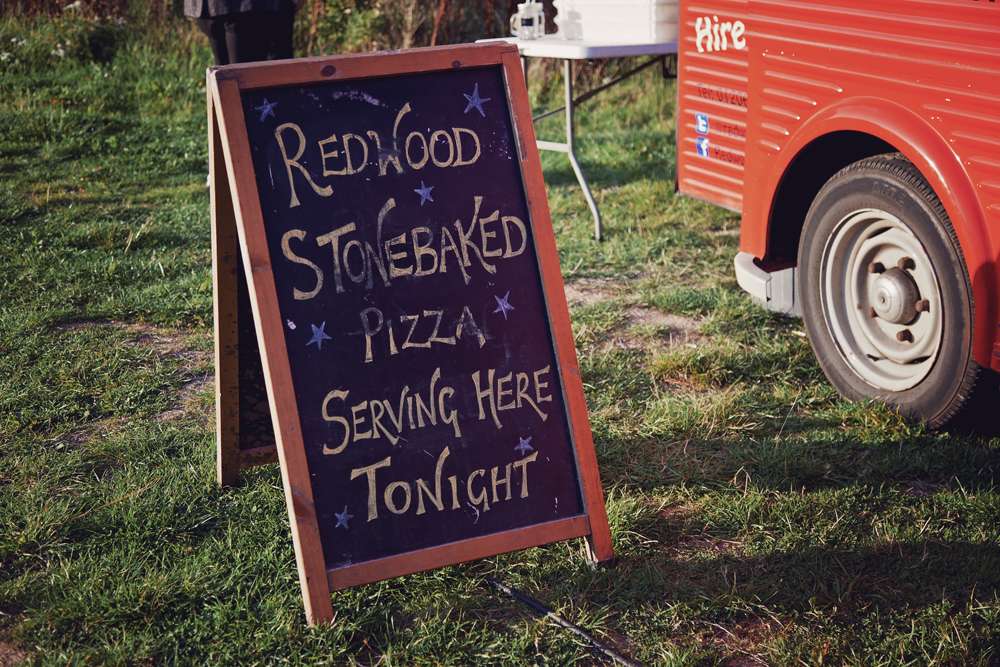 Redwood
Stonebaked
Pizza
Serving Here
Tonight
Hire